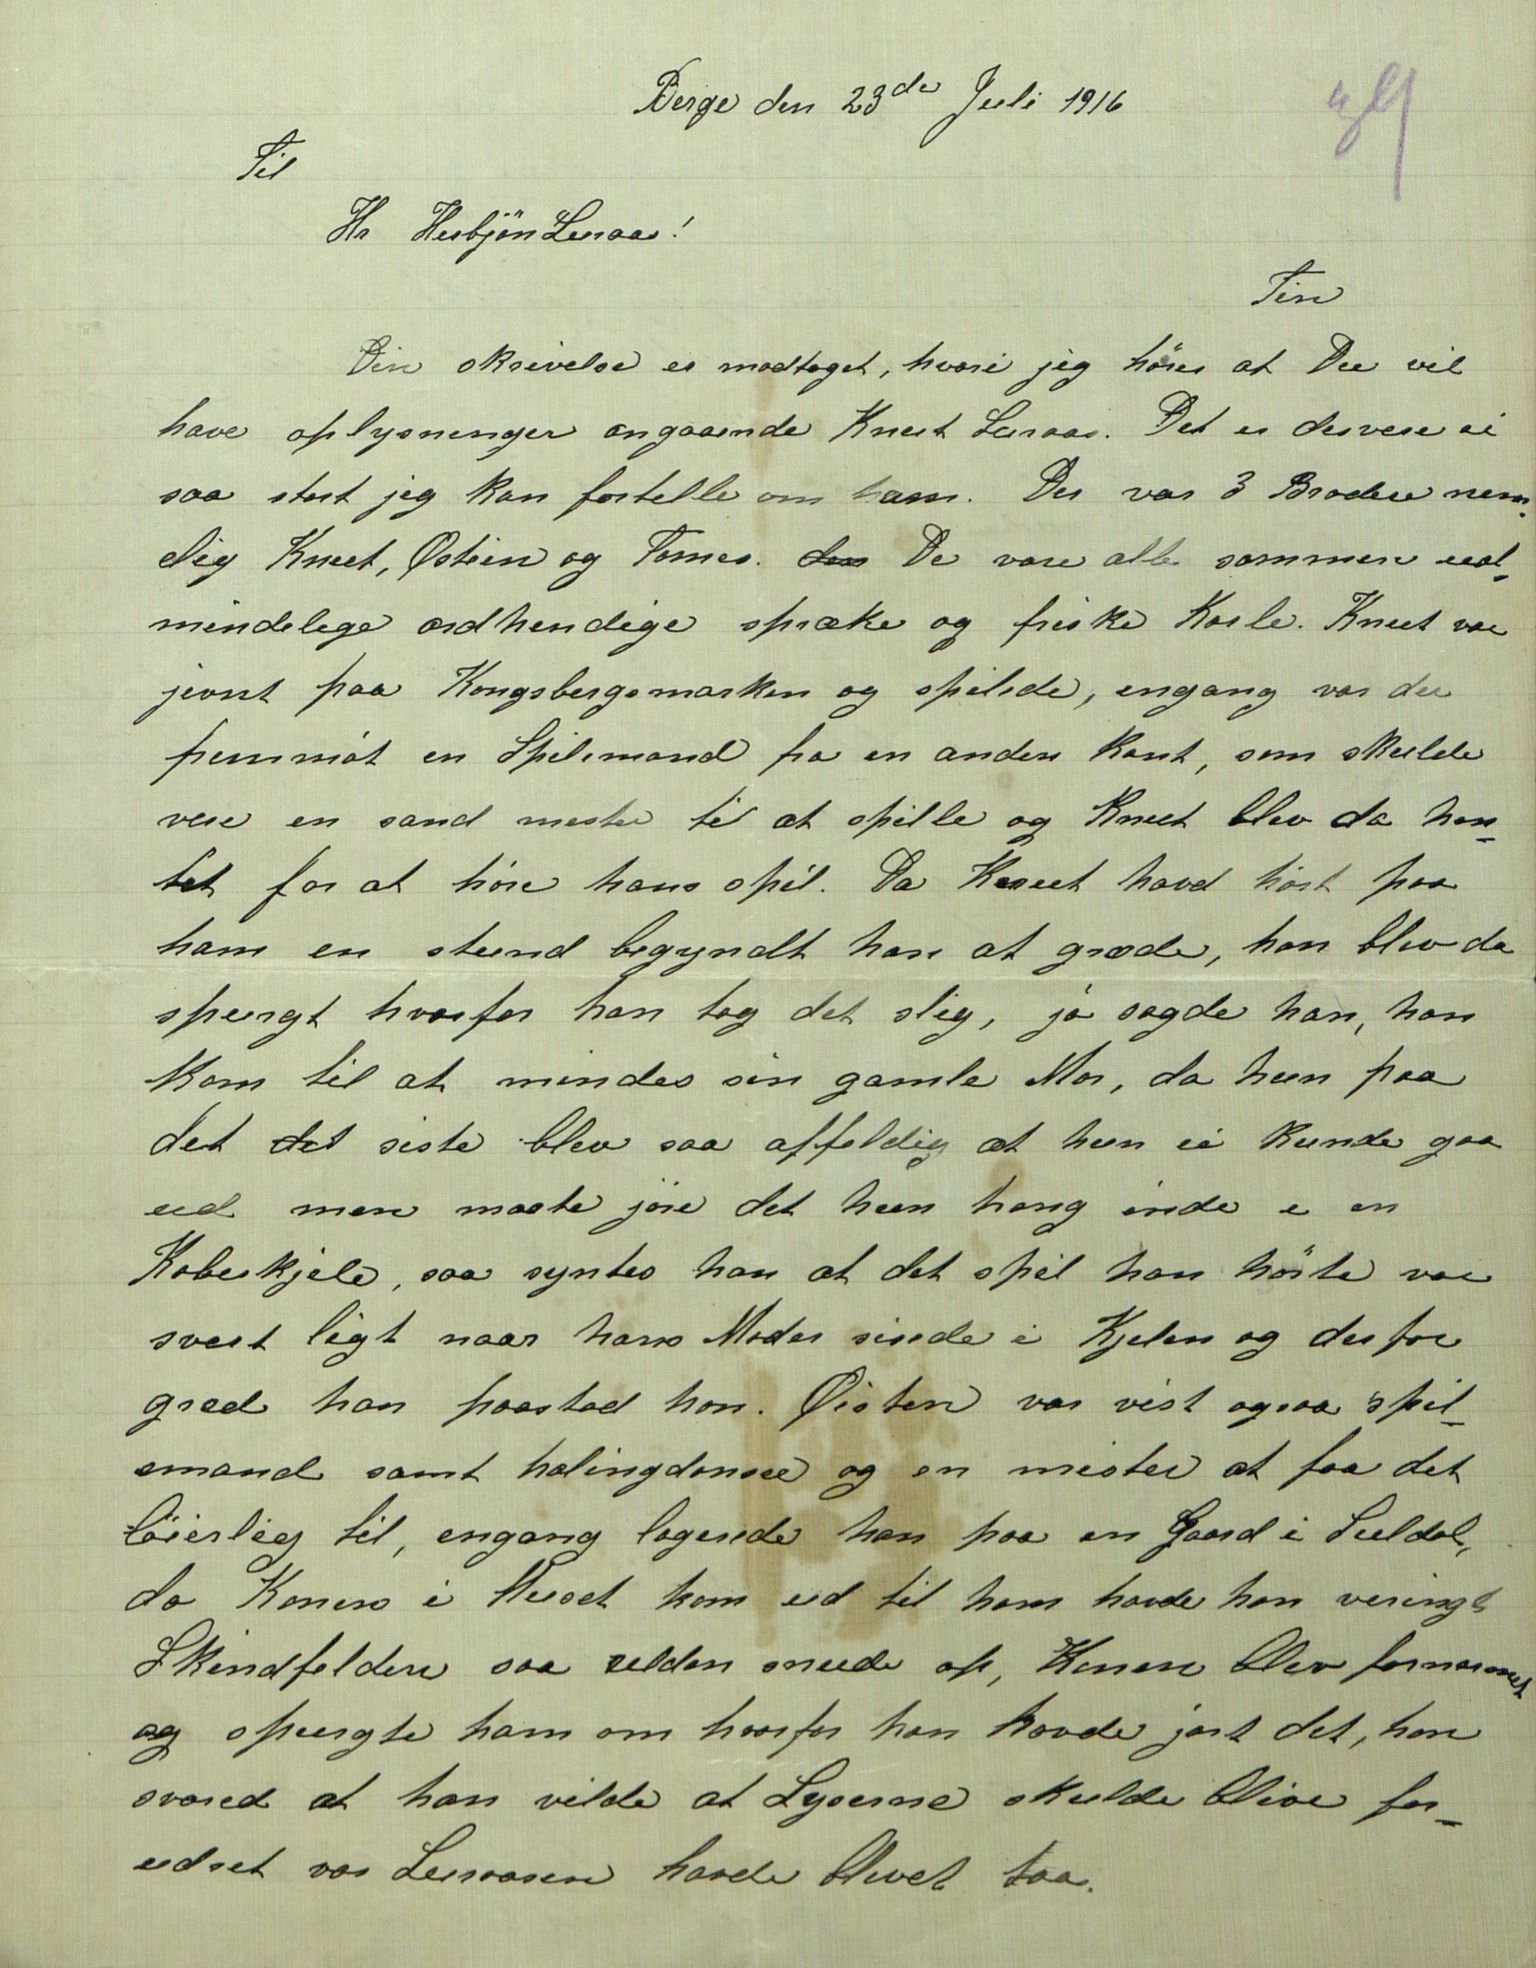 Berge den 23de Juli 1916
Til
Hr Herbjön Luraas!
Tin
Din skrivelse er modtaget, hvori jeg hörer at Du vil
have oplysninger angaaende Knut Luraas. Det er desvere ei
saa stort jeg kan fortelle om ham. Der var 3 Brødre nem-
dlig Knut, Østein og Tomes. De vare alle sammen ual-
mindelege ordhendige spræke og friske Karle. Knut var
jevnt paa Kongsbergsmarken og spilede, engang var der
fremmöt en Spilemand fra en anden Kant, som skulde
vere en sand mester til at spille og Knut blev da hen-
tet for at höre hans spil. Da Knut havd hört paa
ham en stund begyndt han at græde, han blev da
spurgt hvorfor han tog det slig, jo sagde han, han
kom til at mindes sin gamle Mor, da hun paa
det det siste blev saa affeldig at hun ei kunde gaa
ud men maate jöre det hun trang inde i en
Koberkjele, saa syntes han at det spil han hörte var
svert ligt naar hans Moder  i Kjelen og derfor
græd han paastod han. Øisten var vist ogsaa spil-
emand samt halingdanser og en mester at faa det
löierlig til, engang logerede han paa en Gaard i Luldal,
da Konen i Huset kom ud til ham havde han vrengt
Skindfelden saa ulden snude op, Konen blev fornærmet
og spurgte ham om hvorfor han havde jort det, han
svared at han vilde at Lyserne skulde blive for-
udret var Luraasen havde blevet taa.